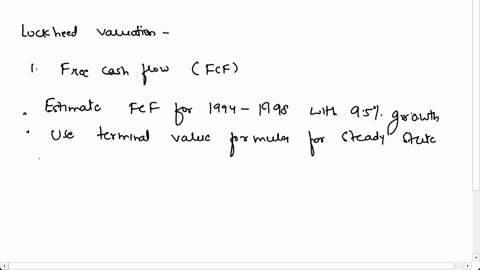 Lockheed valuation -
1. Free cash flow (FCF)
• Estimate FCF for 1994-1998 with 9.5% growth
• Use terminal value formula for steady state